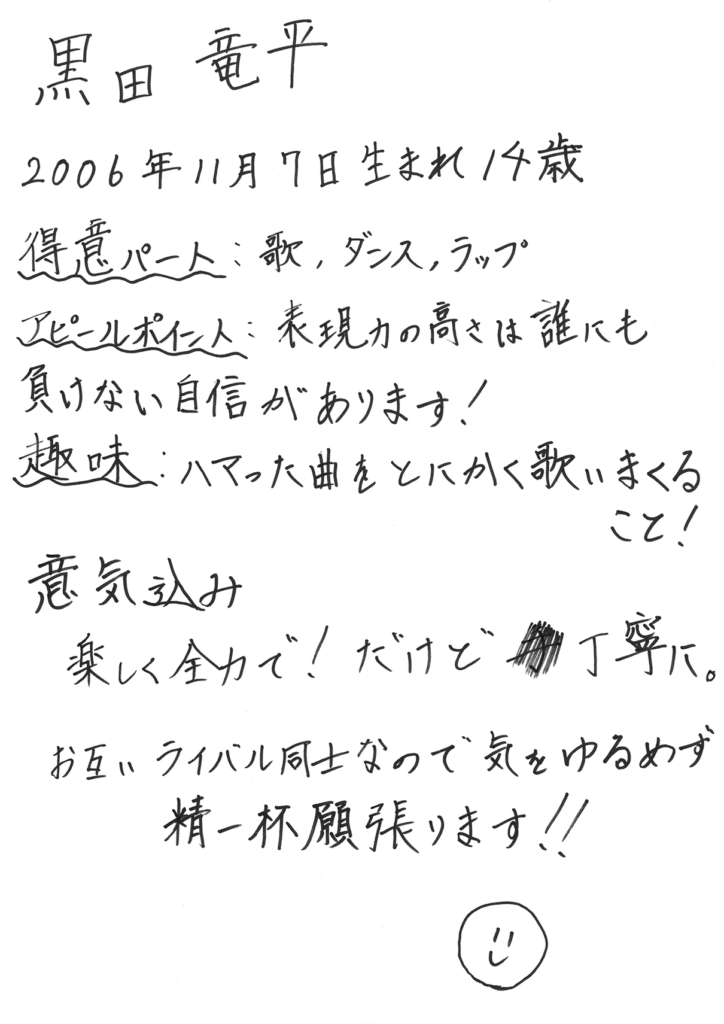 黒田 竜平
2006年11月7日生まれ 14歳
得意パート：歌, ダンス, ラップ
アピールポイント：表現力の高さは誰にも
負けない自信があります！
趣味：ハマった曲をとにかく歌いまくる
こと！
意気込み
楽しく全力で！だけど 丁寧に。
お互いライバル同士なので気をゆるめず
精一杯願張ります!!